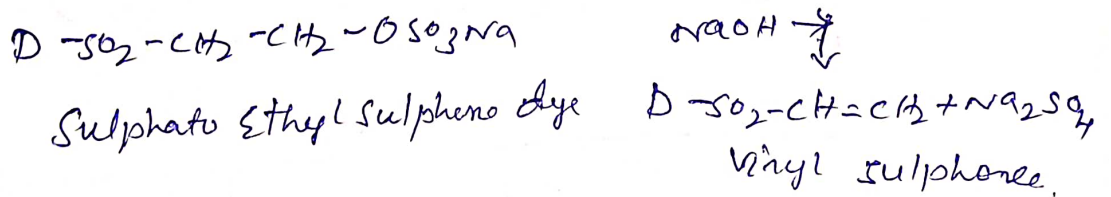 D-SO2-CH2-CH2-OSO3Na NaOH →
Sulphato Ethyl Sulphono dye D-SO2-CH=CH2+Na2SO4
Vinyl sulphonee.